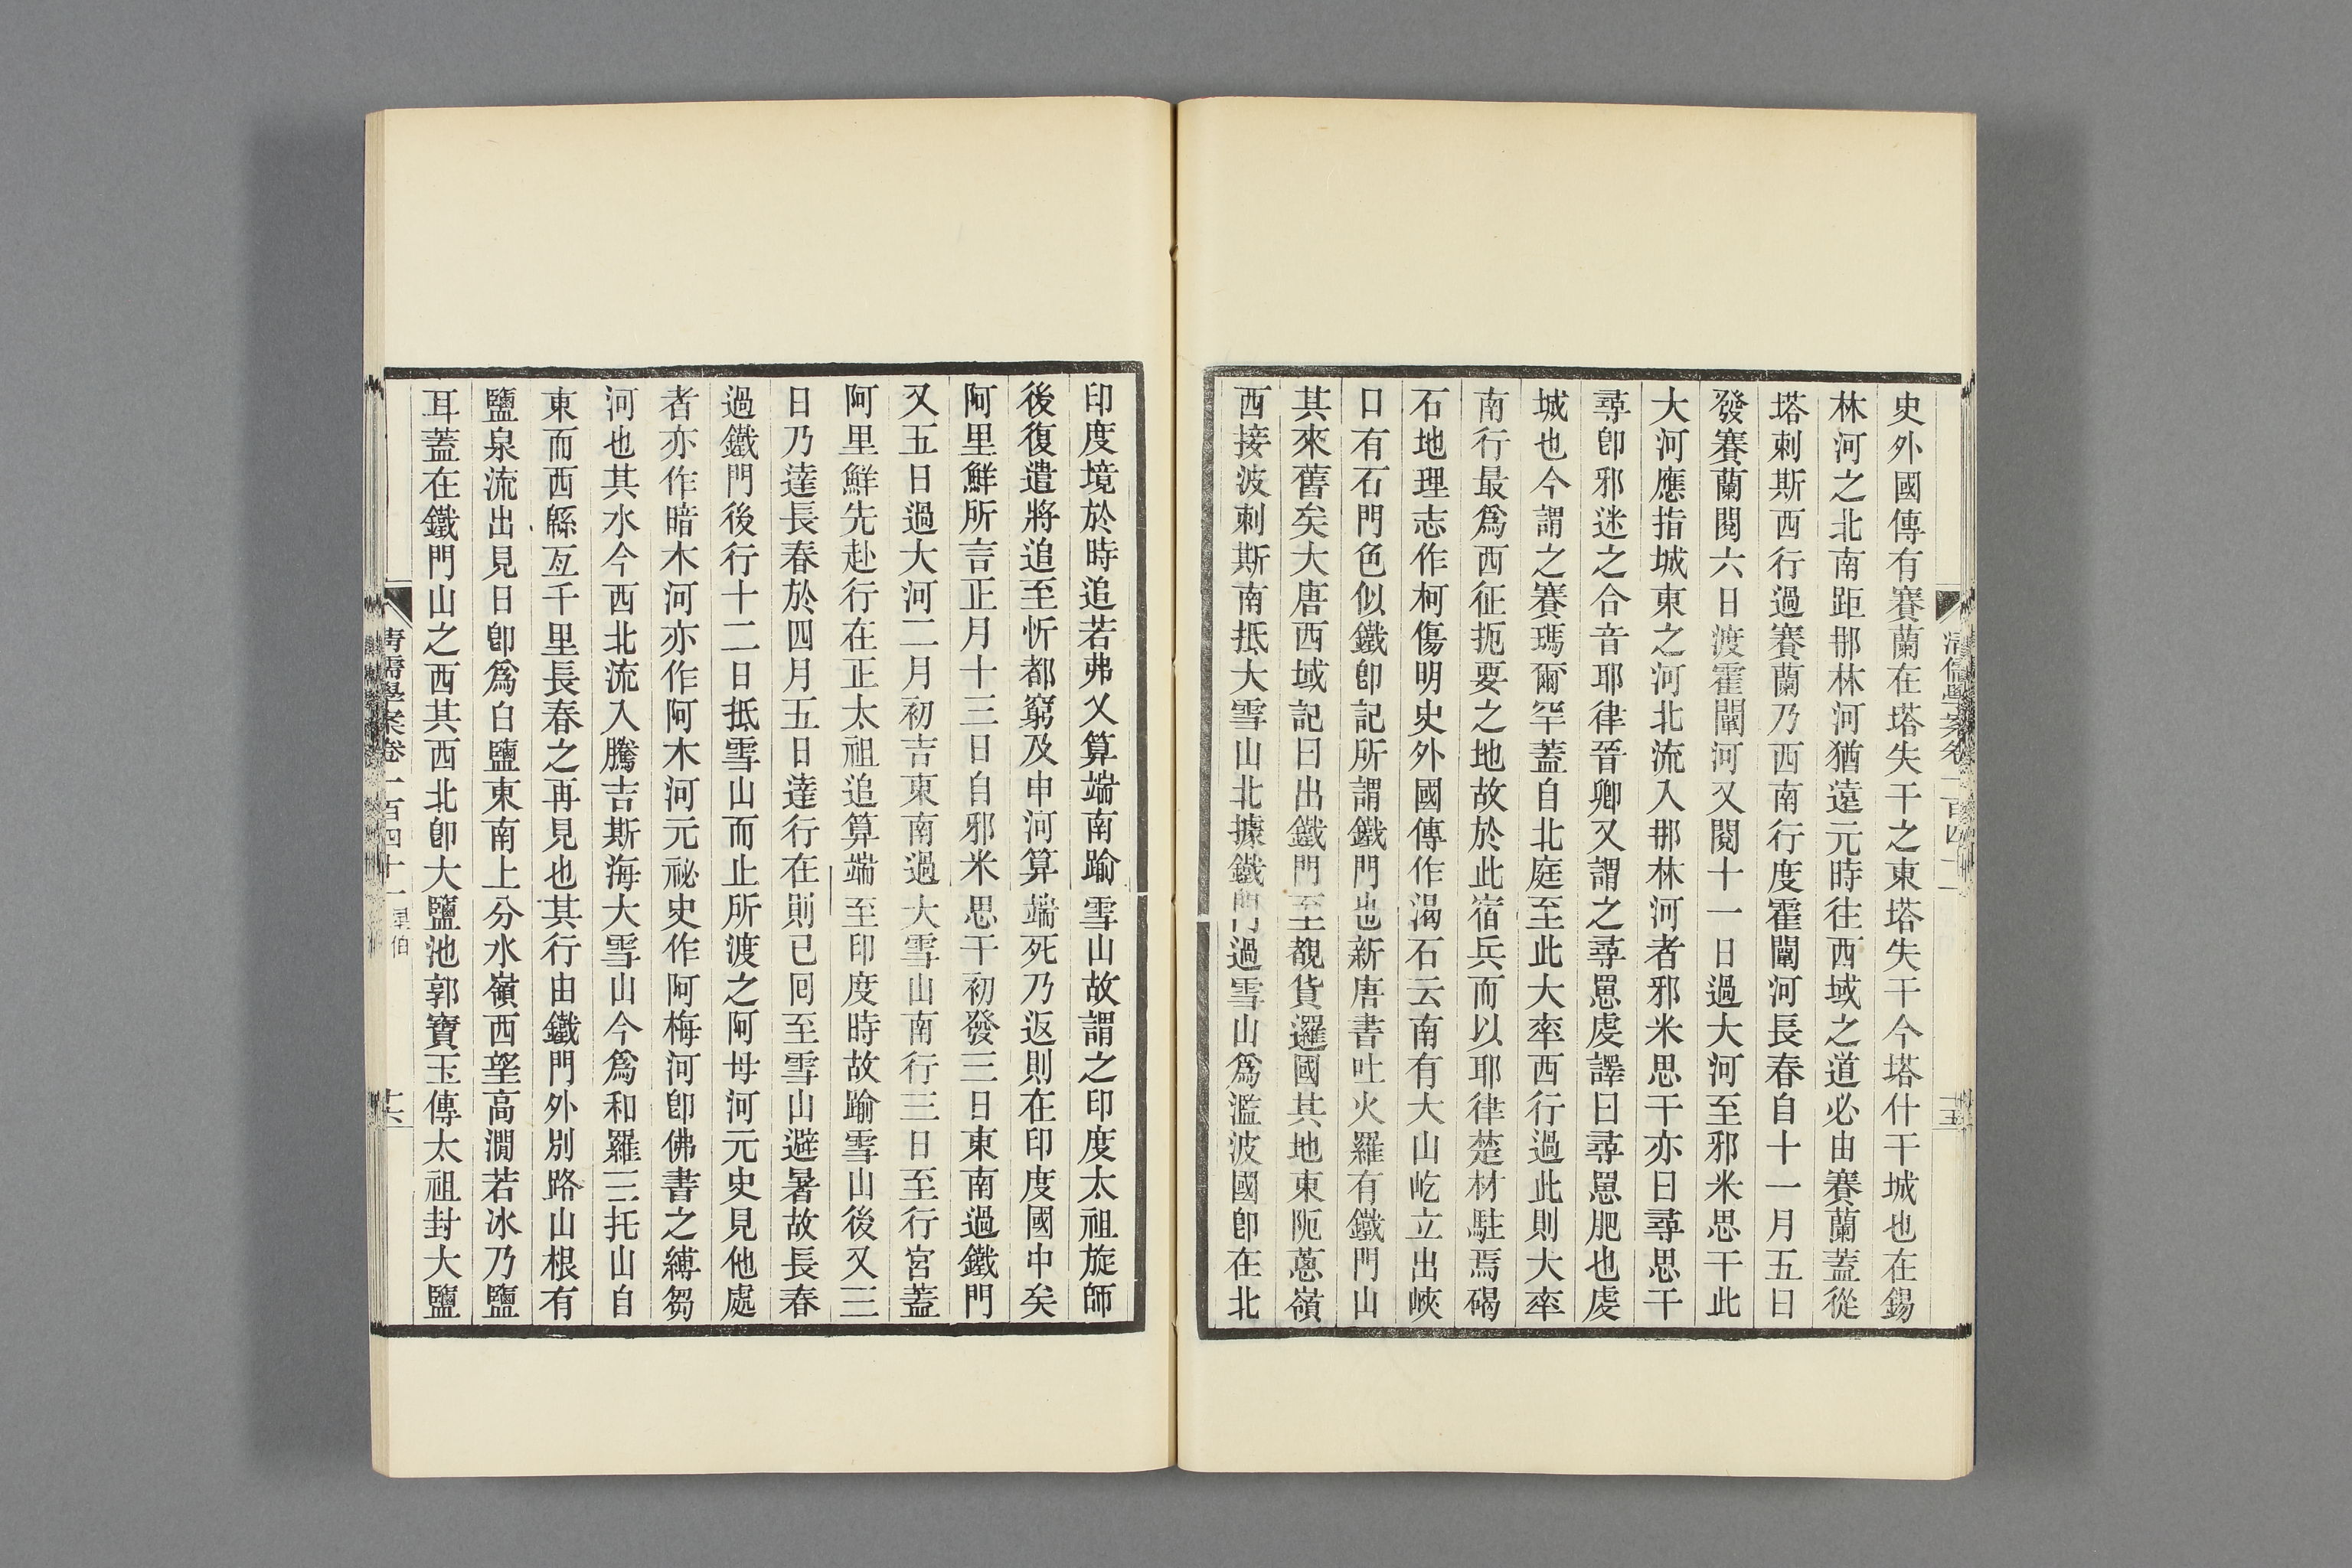 史外國傳有賽蘭在塔失干之東塔失干今塔什干城也在錫
林河之北南距那林河猶遠元時往西域之道必由賽蘭蓋從
塔刺斯西行過賽蘭乃西南行度霍闡河長春自十一月五日
發賽蘭閱六日渡霍闡河又閱十一日過大河至邪米思干此
大河應指城東之河北流入那林河者邪米思干亦曰尋思干
尋卽邪迷之合音耶律晉卿又謂之尋罳虔譯曰尋罳肥也虔
城也今謂之賽瑪爾罕蓋自北庭至此大率西行過此則大率
南行最爲西征扼要之地故於此宿兵而以耶律楚材駐焉碣
石地理志作柯傷明史外國傳作渴石云南有大山屹立出峽
口有石門色似鐵卽記所謂鐵門也新唐書吐火羅有鐵門山
其來舊矣大唐西域記曰出鐵門至覩貨邏國其地東阨蔥嶺
西接波刺斯南抵大雪山北據鐵門過雪山爲濫波國卽在北
清儒學案卷一百四十一
十五
印度境於時追若弗乂算端南踰雪山故謂之印度太祖旋師
後復遣將追至忻都窮及申河算端死乃返則在印度國中矣
阿里鮮所言正月十三日自邪米思干初發三日東南過鐵門
又五日過大河二月初吉東南過大雪山南行三日至行宮蓋
阿里鮮先赴行在正太祖追算端至印度時故踰雪山後又三
日乃達長春於四月五日達行在則已回至雪山避暑故長春
過鐵門後行十二日抵雪山而止所渡之阿母河元史見他處
者亦作暗木河亦作阿木河元祕史作阿梅河卽佛書之縛芻
河也其水今西北流入騰吉斯海大雪山今爲和羅三托山自
東而西緜亙千里長春之再見也其行由鐵門外別路山根有
鹽泉流出見日卽爲白鹽東南上分水嶺西望高澗若冰乃鹽
耳蓋在鐵門山之西其西北卽大鹽池郭寶玉傳太祖封大鹽
清儒學案卷一百四十一 星伯
十六